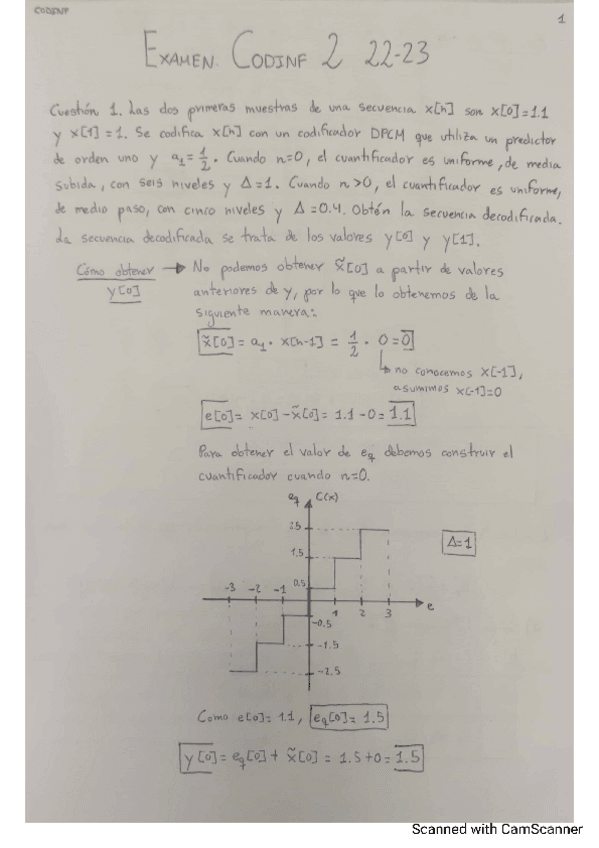 CODINF
1
EXAMEN CODINF 2 22-23
Cuestión 1. Las dos primeras muestras de una secuencia x[n] son x[0]=1.1
y x[1]=1. Se codifica x[n] con un codificador DPCM que utiliza un predictor
de orden uno y a₁=1/2. Cuando n=0, el cuantificador es uniforme, de media
subida, con seis niveles y Δ=1. Cuando n>0, el cuantificador es uniforme,
de medio paso, con cinco niveles y Δ=0.4. Obtén la secuencia decodificada.
La secuencia decodificada se trata de los valores y[0] y y[1].
Cómo obtener → No podemos obtener x̃[0] a partir de valores
y[0] anteriores de y, por lo que lo obtenemos de la
siguiente manera:
x̃[0]= a₁ · x[n-1] = 1/2 · 0 = 0
↳ no conocemos x[-1],
asumimos x[-1]=0
e[0]= x[0] - x̃[0] = 1.1 - 0 = 1.1
Para obtener el valor de eq debemos construir el
cuantificador cuando n=0.
eq C(x)
2.5
Δ=1
1.5
0.5
-3 -2 -1
1 2 3 e
-0.5
-1.5
-2.5
Como e[0]= 1.1, eq[0]= 1.5
y[0]= eq[0] + x̃[0] = 1.5+0 = 1.5
Scanned with CamScanner